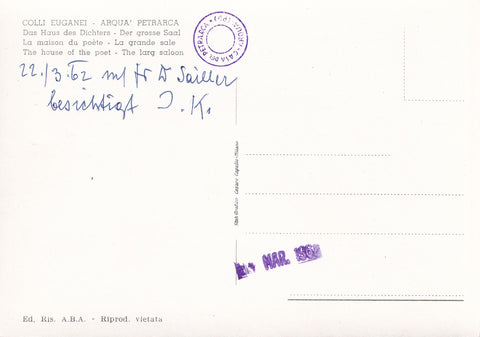 COLLI EUGANEI - ARQUA' PETRARCA
Das Haus des Dichters - Der grosse Saal
La maison du poète - La grande sale
The house of the poet - The larg saloon
22./3.62 m/ Dr Sailler
besichtigt J. K.
MAR. 196
Ed. Ris. A.B.A. - Riprod. vietata